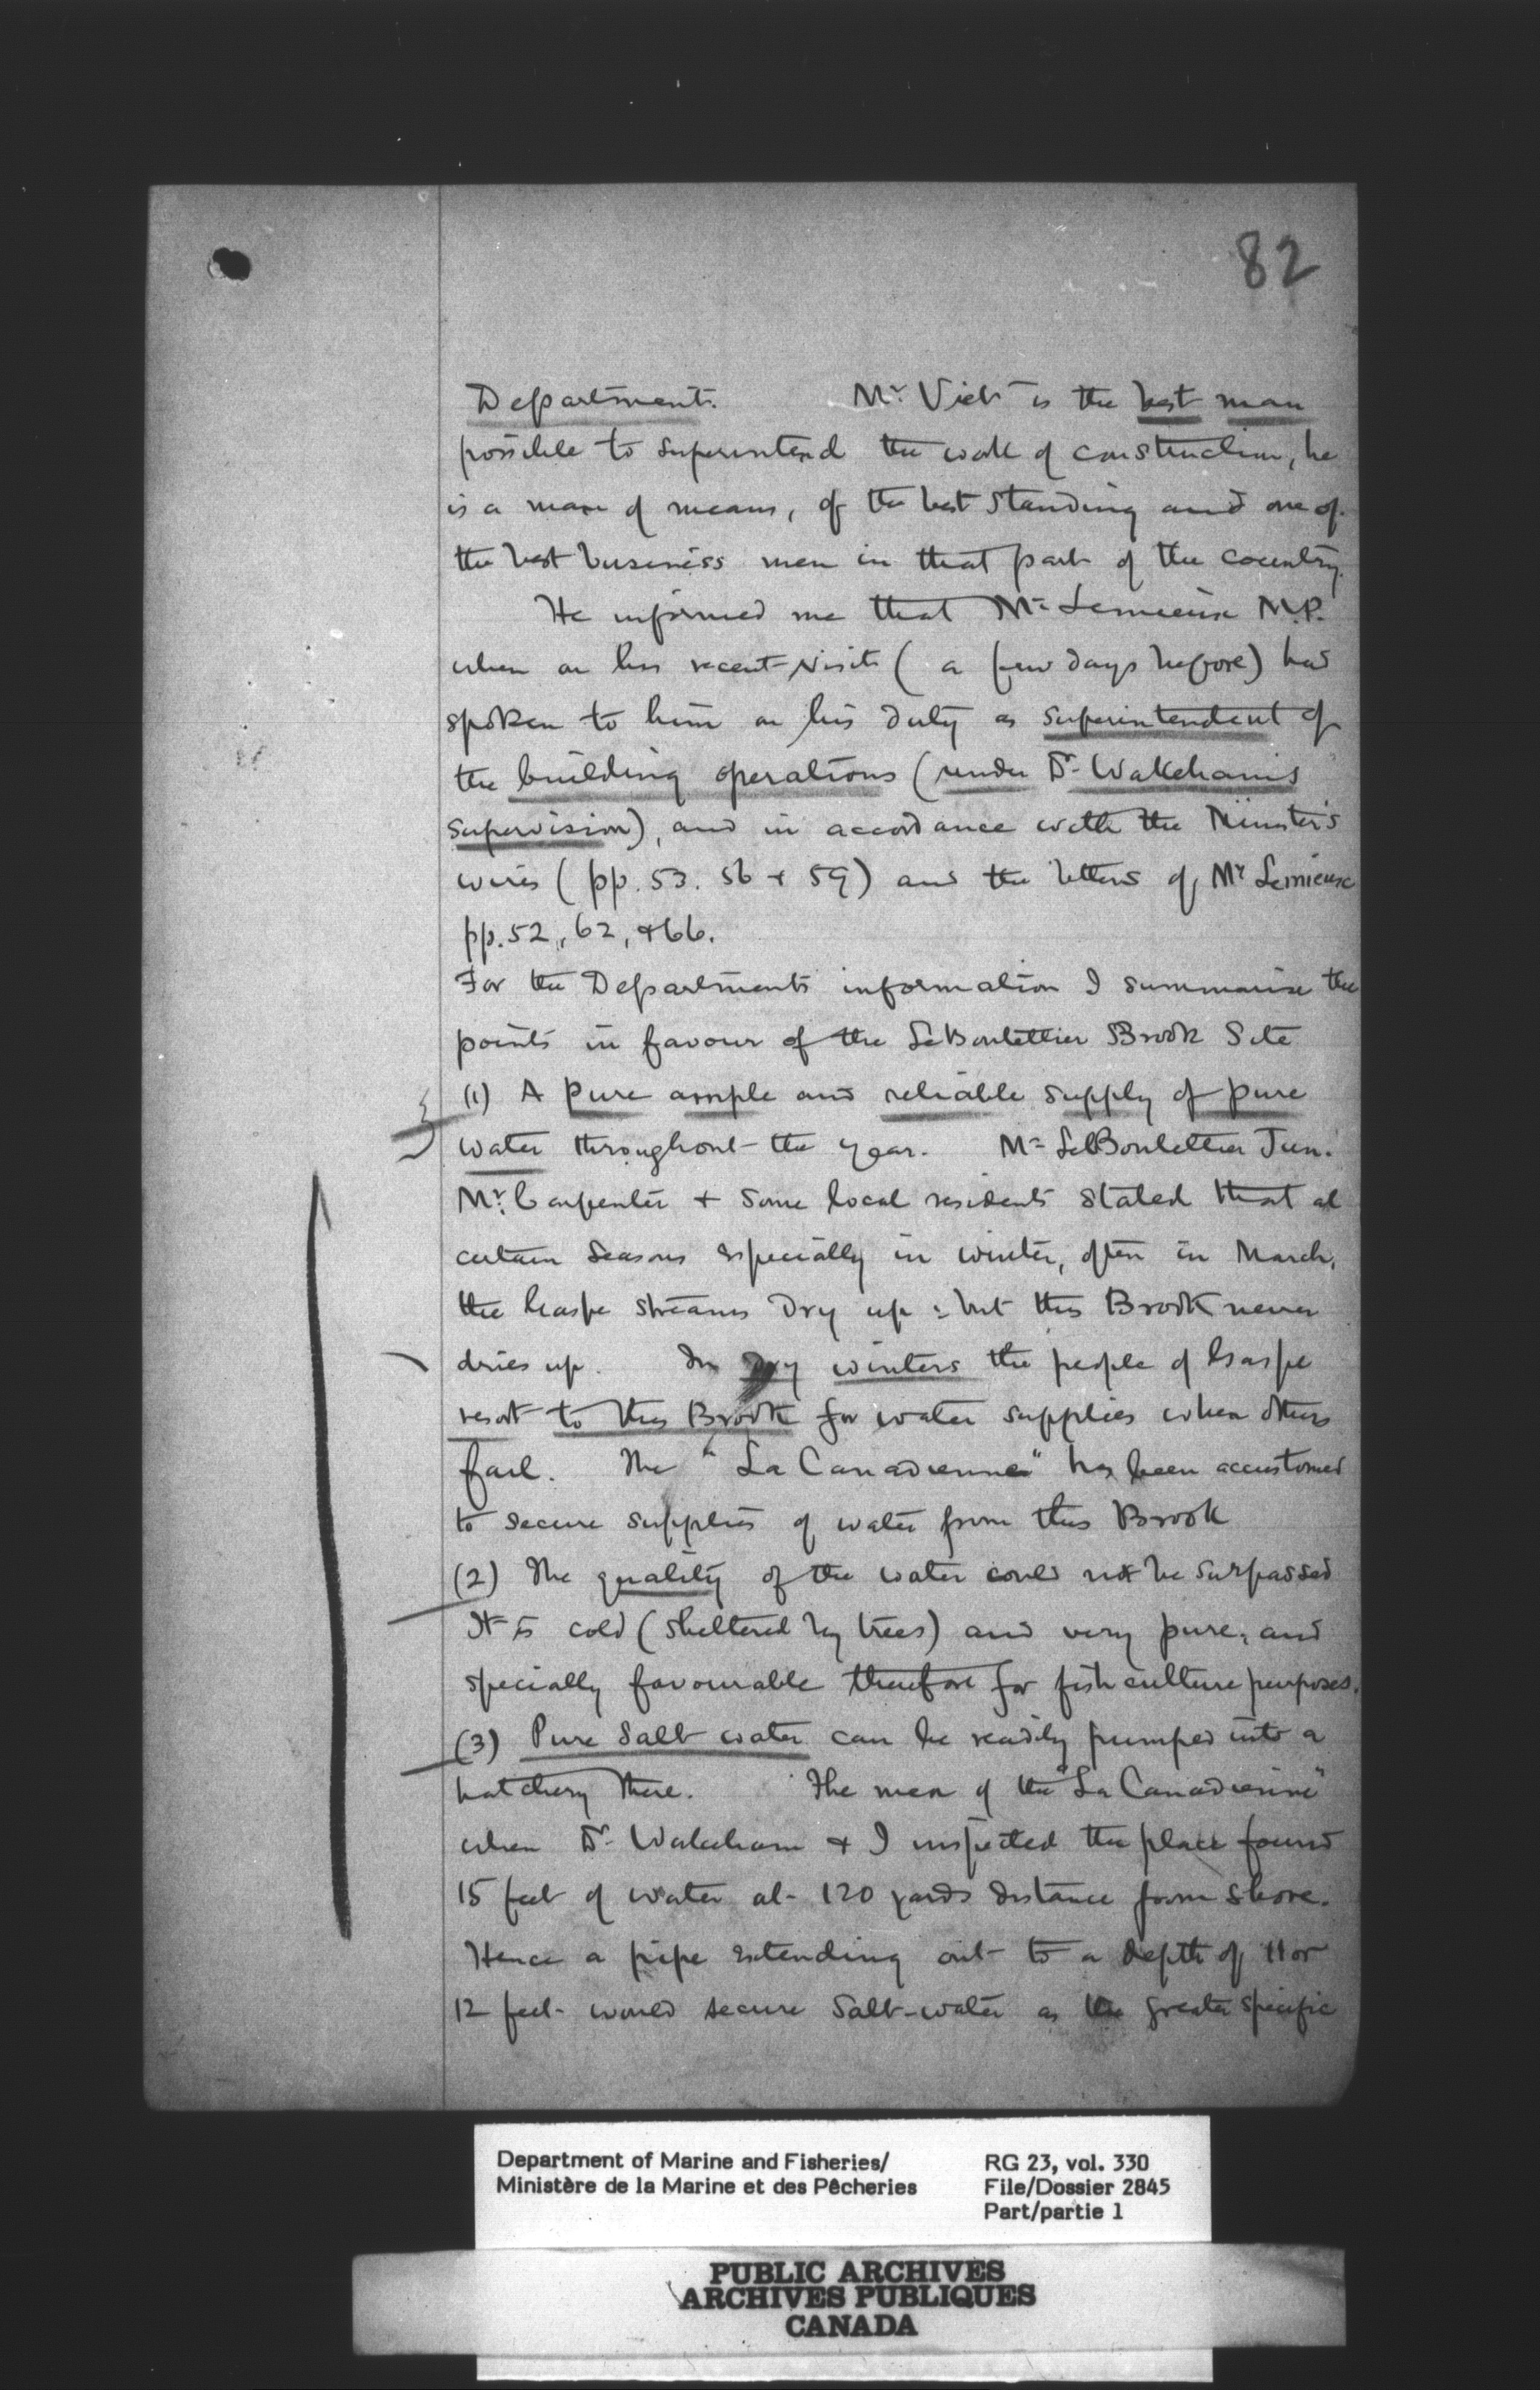 82
Department. Mr. Viet is the best man
possible to superintend the work of construction, he
is a man of means, of the best standing and one of
the best business men in that part of the country.
He informed me that Mr Lemieux M.P.
when on his recent visit (a few days before) had
spoken to him on his duty as superintendent of
the building operations (under Dr. Wakeham's
supervision), and in accordance with the Minister's
wires (pp. 53. 56 + 59) and the letters of Mr Lemieux
pp. 52, 62, + 66.
For the Departments information I summarise the
points in favour of the LeBoutellier Brook Site
(1) A pure ample and reliable supply of pure
water throughout the year. Mr LeBoutellier Jun.
Mr. Carpenter + some local residents stated that at
certain seasons especially in winter, often in March,
the Gaspe streams dry up: but this Brook never
dries up. In dry winters the people of Gaspe
resort to this Brook for water supplies when others
fail. The "La Canadienne" has been accustomed
to secure supplies of water from this Brook
(2) The quality of the water could not be surpassed
It is cold (sheltered by trees) and very pure, and
specially favourable therefore for fish culture purposes.
(3) Pure Salt water can be readily pumped into a
hatchery there. The men of the "La Canadienne"
when Dr. Wakeham + I inspected the place found
15 feet of water at 120 yards distance from shore.
Hence a pipe extending out to a depth of 11 or
12 feet would secure Salt-water as the greater specific
Department of Marine and Fisheries/
Ministère de la Marine et des Pêcheries
RG 23, vol. 330
File/Dossier 2845
Part/partie 1
PUBLIC ARCHIVES
ARCHIVES PUBLIQUES
CANADA